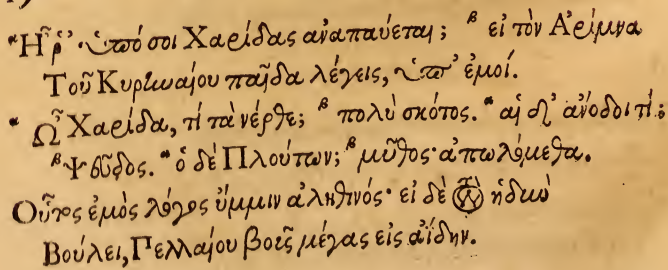 α Ἦ ῥ' ὑπό σοι Χαρίδας ἀναπαύεται; β εἰ τὸν Ἀρίμνα
Τοῦ Κυρηναίου παῖδα λέγεις, ὑπ' ἐμοί.
α Ὦ Χαρίδα, τί τὰ νέρθε; β πολὺ σκότος. α αἱ δ' ἄνοδοι τί;
β Ψεῦδος. α ὁ δὲ Πλούτων; β μῦθος· ἀπωλόμεθα.
Οὗτος ἐμὸς λόγος ὔμμιν ἀληθινός· εἰ δὲ τὸν ἡδὺν
Βούλει, Πελλαίου βοῦς μέγας εἰς ἀΐδην.